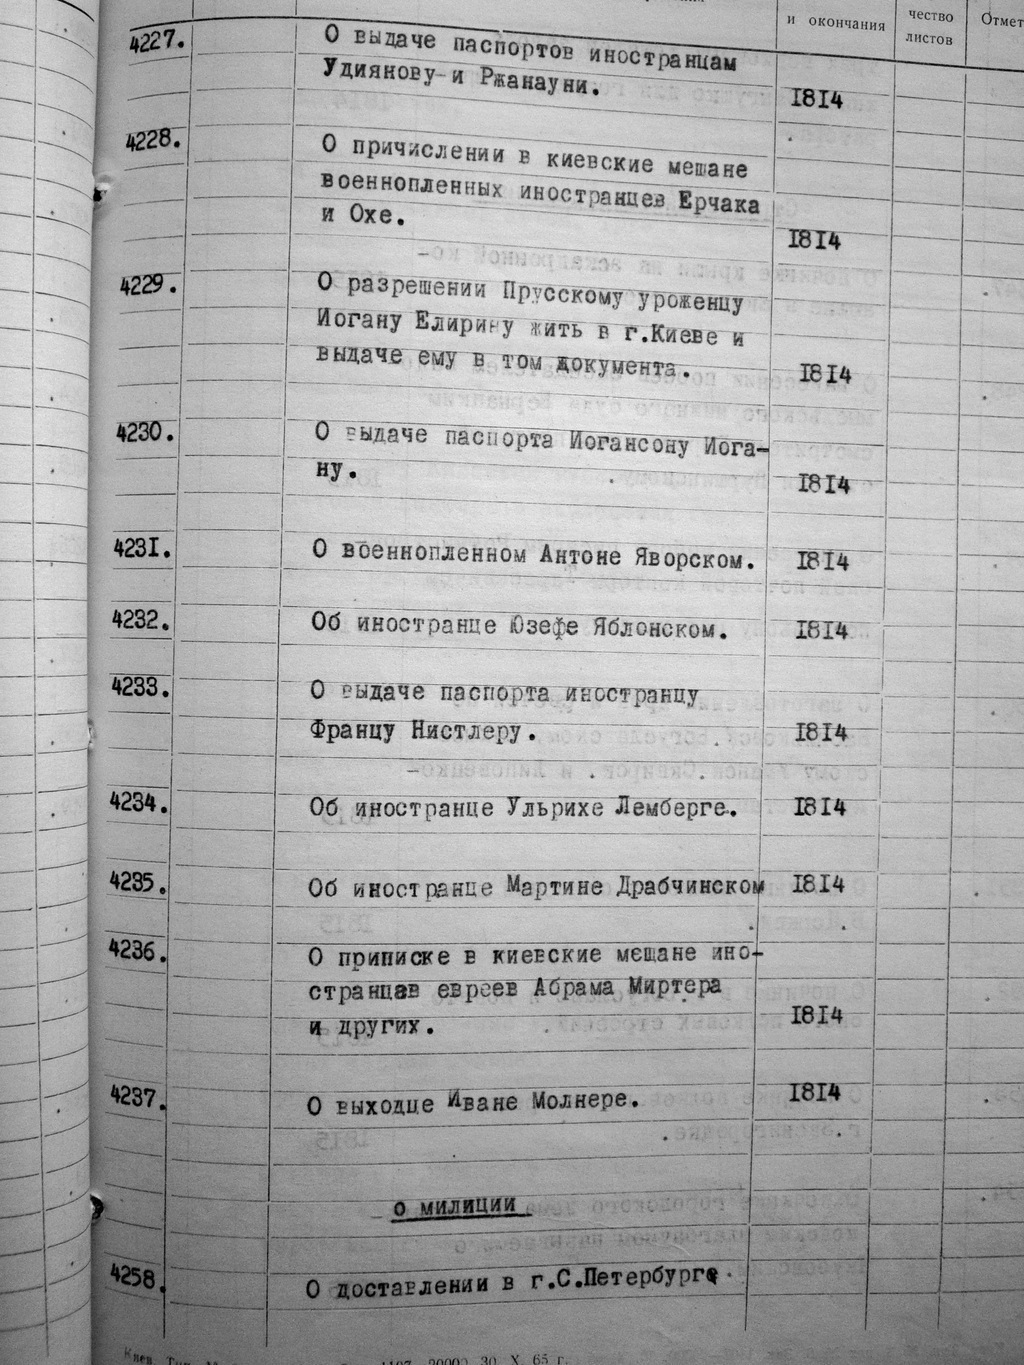 и окончания
чество
листов
Отмет
4227.
О выдаче паспортов иностранцам
Удиянову и Ржанауни.
1814
4228.
О причислении в киевские мещане
военнопленных иностранцев Ерчака
и Охе.
1814
4229.
О разрешении Прусскому уроженцу
Иогану Елирину жить в г.Киеве и
выдаче ему в том документа.
1814
4230.
О выдаче паспорта Иогансону Иога-
ну.
1814
4231.
О военнопленном Антоне Яворском.
1814
4232.
Об иностранце Юзефе Яблонском.
1814
4233.
О выдаче паспорта иностранцу
Францу Нистлеру.
1814
4234.
Об иностранце Ульрихе Лемберге.
1814
4235.
Об иностранце Мартине Драбчинском
1814
4236.
О приписке в киевские мещане ино-
странцав евреев Абрама Миртера
и других.
1814
4237.
О выходце Иване Молнере.
1814
о милиции
4258.
О доставлении в г.С.Петербурге.
30. X. 65 г.